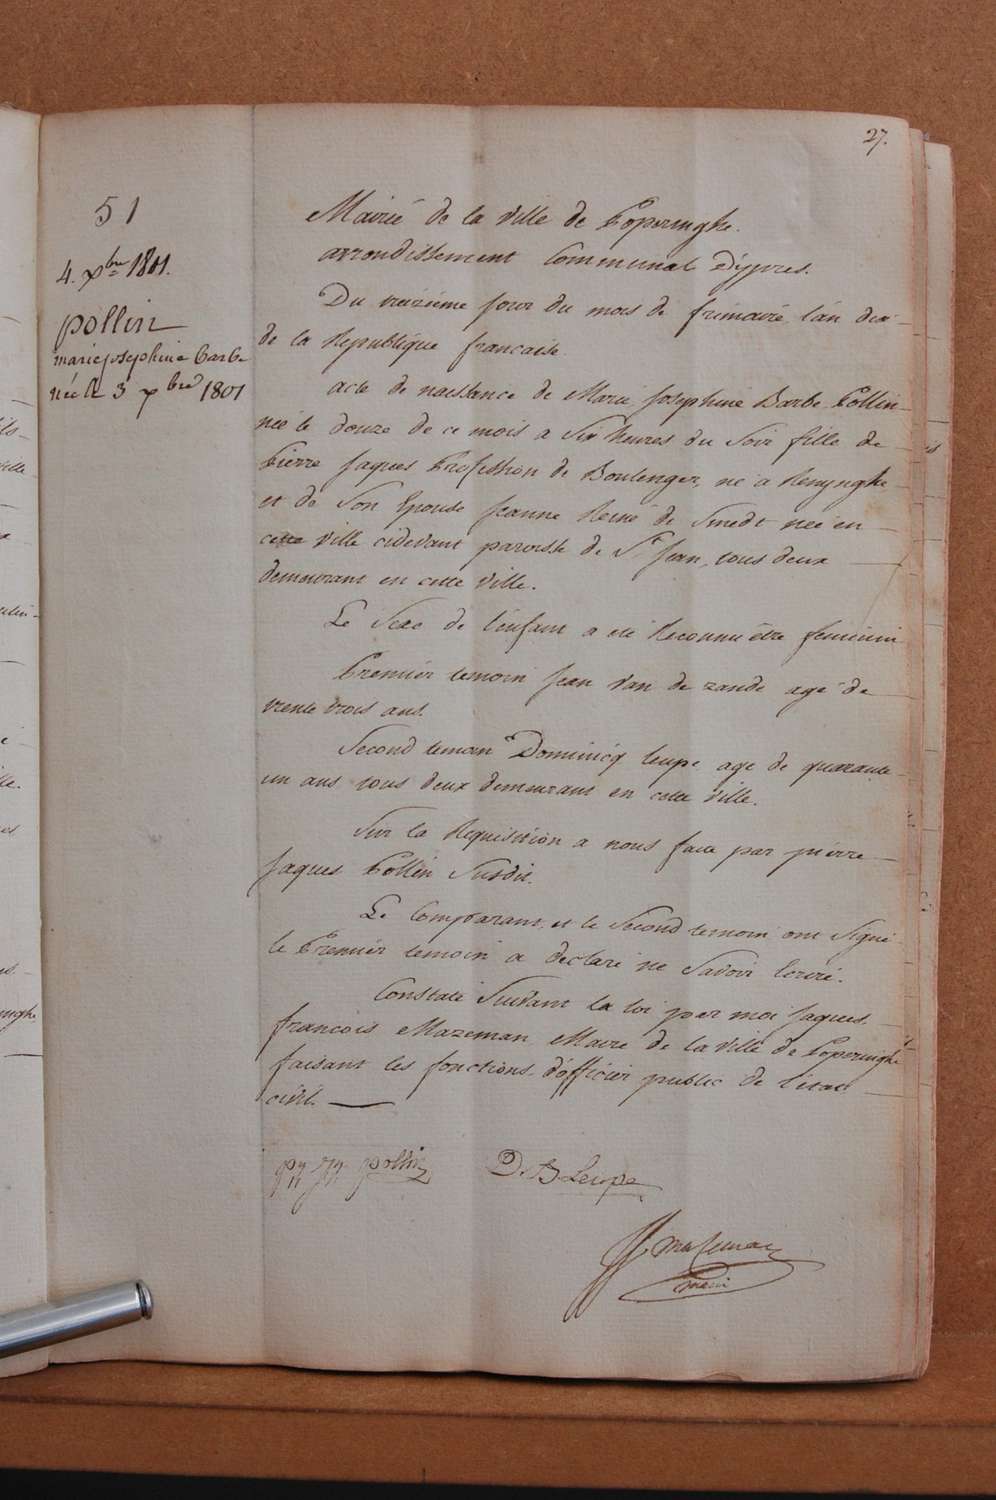 27.
51
4. xbre 1801.
pollin
marie josephine barbe
née le 3 xbre 1801
Mairié de la Ville de Poperinghe.
arrondissement Communal d'ypres.
Du treizième jour du mois de frimaire l'an dix
de la Republique francaise.
acte de naissance de Marie Josephine Barbe Pollin
née le douze de ce mois a Six heures du Soir fille de
Pierre Jaques Profession de Boulenger, né a Renynghe
et de Son Epouse Jeanne Reine de Smedt née en
cette Ville cidevant paroisse de St Jean, tous deux
demeurant en cette Ville.
Le Sexe de l'enfant a eté Reconnu être feminin
Premier temoin Jean Van de Zande agé de
trente trois ans.
Second temoin Dominicq Leupe age de quarante
un ans tous deux demeurant en cette Ville.
Sur la Requisition a nous faite par pierre
Jaques Pollin Susdit.
Le Comparant, et le Second temoin ont Signé
le Premier temoin a declaré ne Savoir Ecrire.
Constaté Suivant la loi par moi Jaques
francois Mazeman Maire de la Ville de Poperinghe
faisant les fonctions d'officier public de l'etat
civil.
pollin
D. B Leupe
Mazeman
maire